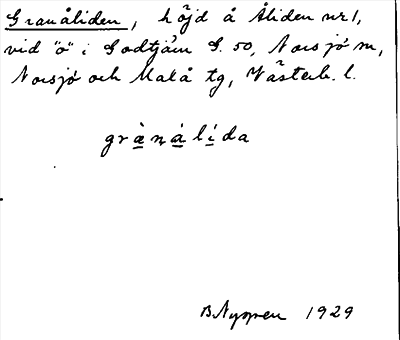 Granåliden, höjd å Åliden nr 1,
vid "ö" i Godtjärn S. 50, Norsjö sn,
Norsjö och Malå tg, Västerb. l.
grànáli̍da
B. Nyppen 1929